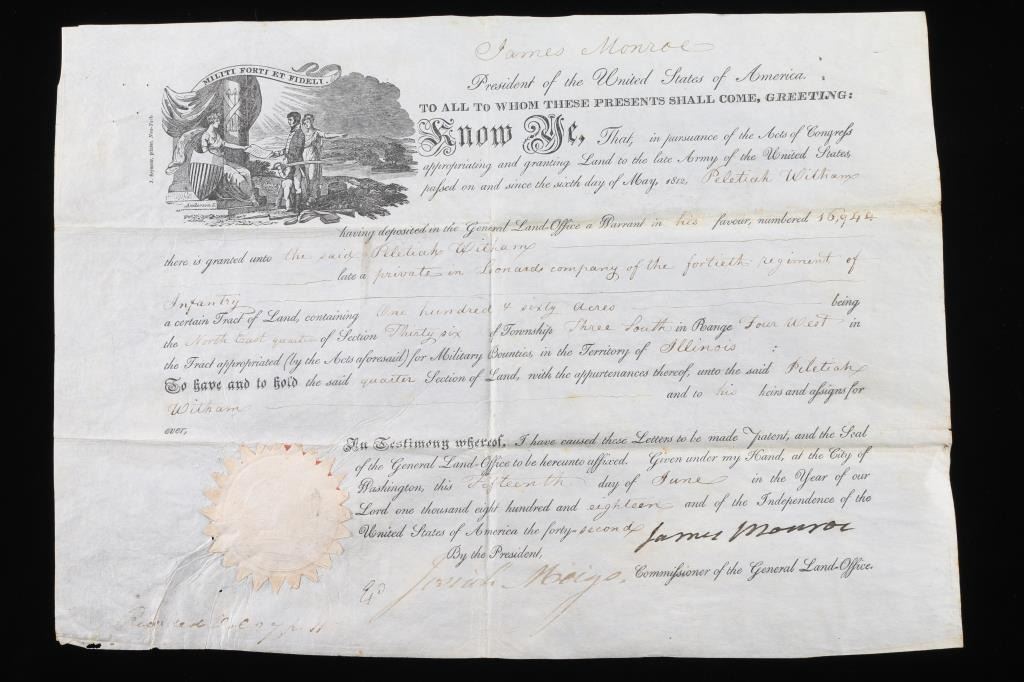 James Monroe
President of the United States of America.
MILITI FORTI ET FIDELI.
TO ALL TO WHOM THESE PRESENTS SHALL COME, GREETING:
Know Ye, That, in pursuance of the Acts of Congress
appropriating and granting Land to the late Army of the United States,
passed on and since the sixth day of May, 1812, Peletiah Witham
Anderson
having deposited in the General Land-Office a Warrant in his favour, numbered 16,944
there is granted unto the said Peletiah Witham
late a private in Leonards company of the fortieth regiment of
Infantry
a certain Tract of Land, containing One hundred & sixty acres being
the North East quarter of Section Thirty six of Township Three South in Range Four West in
the Tract appropriated (by the Acts aforesaid) for Military Bounties, in the Territory of Illinois :
To have and to hold the said quarter Section of Land, with the appurtenances thereof, unto the said Peletiah
Witham and to his heirs and assigns for
ever,
In Testimony whereof, I have caused these Letters to be made Patent, and the Seal
of the General Land-Office to be hereunto affixed. Given under my Hand, at the City of
Washington, this Fifteenth day of June in the Year of our
Lord one thousand eight hundred and eighteen and of the Independence of the
United States of America the forty-second
James Monroe
By the President,
Josiah Meigs, Commissioner of the General Land-Office.